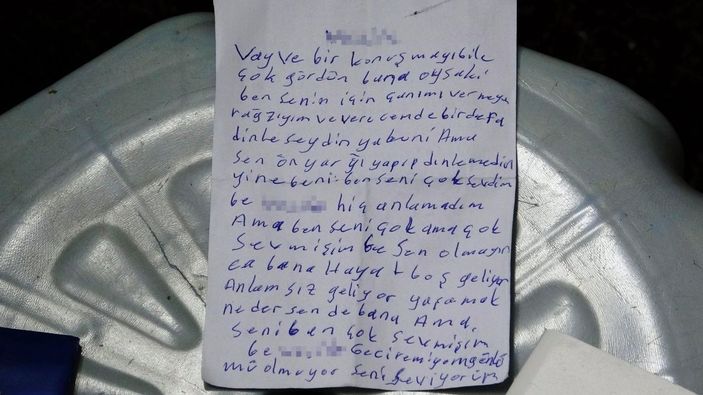 Vay ve bir konuşmayıbile
çok gördün bana oysaki
ben senin için canımı vermeye
rağzıyım ve verecemde birdefa
dinleseydin yabeni Ama
Sen ön yargı yapıp dinlemedin
yine beni ben seni çok sevdim
be hiç anlamadım
Ama ben seni çok ama çok
Sevmişim be sen olmayın
ca bana Hayat boş geliyor
Anlamsız geliyor yaşamak
nedersende bana Ama,
Seni ben çok sevmişim
be Geciremiyorm gönlü
mü olmuyor Seni Seviyorum